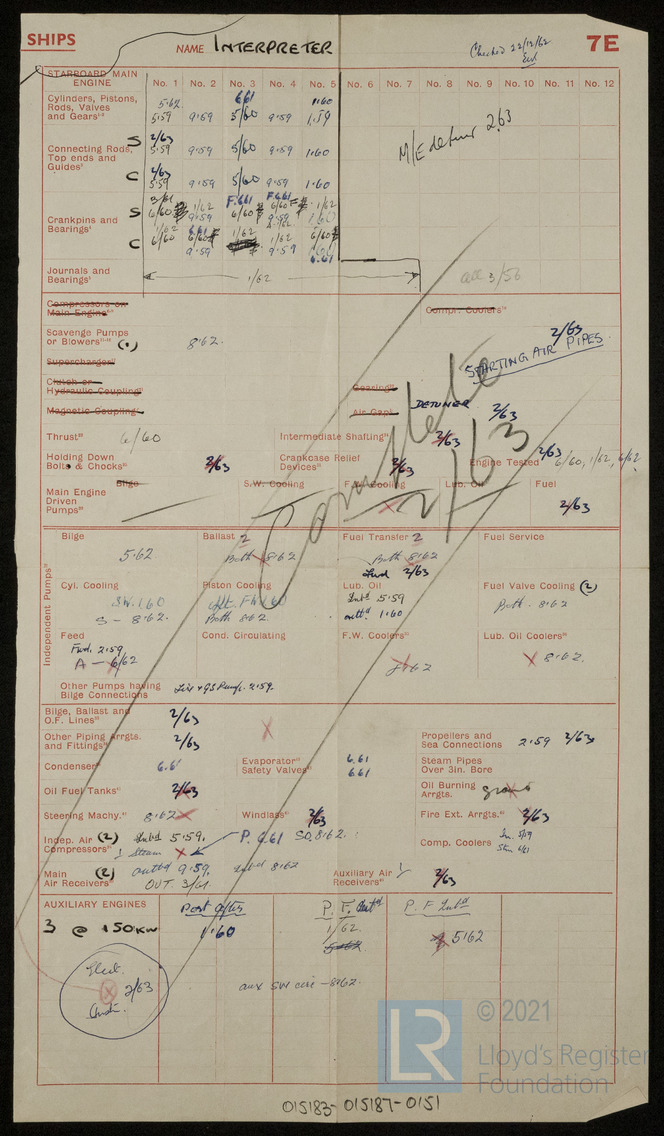 SHIPS
NAME INTERPRETER
Checked 22/12/62
7E
STARBOARD MAIN ENGINE
No. 1 No. 2 No. 3 No. 4 No. 5 No. 6 No. 7 No. 8 No. 9 No. 10 No. 11 No. 12
Cylinders, Pistons, Rods, Valves and Gears
5.62 6.61 1.60
5.59 9.59 5/60 9.59 1.59
M/E detuner 2.63
Connecting Rods, Top ends and Guides
S 2/63
5.59 9.59 5/60 9.59 1.60
C 2/63
5.59 9.59 5/60 9.59 1.60
Crankpins and Bearings
S
C
Journals and Bearings
1/62
all 3/56
Compressors on Main Engine
Compr. Coolers
Scavenge Pumps or Blowers (1) 8.62.
2/63
STARTING AIR PIPES
Supercharger
Clutch or Hydraulic Coupling
Gearing
Magnetic Coupling
Air Gaps
DETUNER 2/63
Thrust 6/60
Intermediate Shafting 2/63
Holding Down Bolts & Chocks 2/63
Crankcase Relief Devices 2/63
Engine Tested 2/63 6/60, 1/62, 6/62
Main Engine Driven Pumps
Bilge
S.W. Cooling
F.W. Cooling
Lub. Oil
Fuel
2/63
Complete 2/63
Independent Pumps
Bilge
5.62
Ballast 2
Both 8.62
Fuel Transfer 2
Both 8.62
Fwd 2/63
Fuel Service
Cyl. Cooling
S.W. 1.60
S - 8.62.
Piston Cooling
aft. F.W. 1.60
Both 8.62.
Lub. Oil
Inbd 5.59
outbd 1.60
Fuel Valve Cooling (2)
Both. 8.62
Feed
Fwd. 2.59
A - 6/62
Cond. Circulating
F.W. Coolers
8.62
Lub. Oil Coolers
8.62.
Other Pumps having Bilge Connections
Fire & GS Pump. 2.59.
Bilge, Ballast and O.F. Lines 2/63
Other Piping Arrgts. and Fittings 2/63
Propellers and Sea Connections 2.59 2/63
Condenser 6.61
Evaporator 6.61
Safety Valves 6.61
Steam Pipes Over 3in. Bore
Oil Fuel Tanks 2/63
Oil Burning Arrgts.
Steering Machy. 8.62
Windlass 2/63
Fire Ext. Arrgts. 2/63
Indep. Air Compressors (2) Inbd 5.59.
1 Steam
P. 6.61 SO. 8.62.
Comp. Coolers In. 5/59
Stm 6/61
Main Air Receivers (2) outbd 9.59. Inbd 8.62
OUT 3/61
Auxiliary Air Receivers 1 2/63
AUXILIARY ENGINES
3 @ 150KW
Port Aftes
1.60
P. F. Outbd
1/62.
5.62
P. F. Inbd
5.62
Elect.
2/63
aux sw circ - 8.62.
© 2021
LR
Lloyd's Register
Foundation
015183-015187-0151